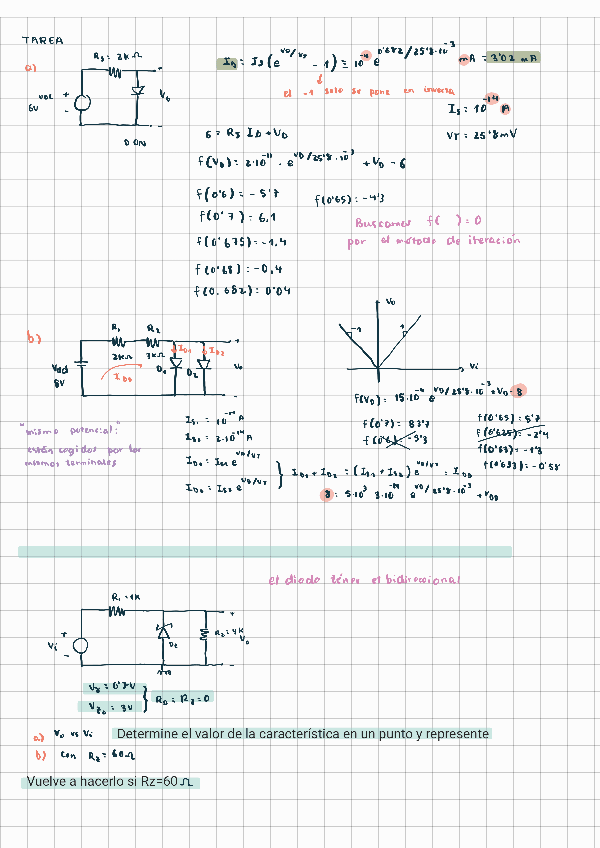 TAREA
a)
Rs = 2kΩ
VDC
6V
+
-
VD
D ON
ID = Is (e^VD/VT - 1) ≈ 10^-14 e^0'682/25'8·10^-3 mA = 3'02 mA
el -1 solo se pone en inversa
Is = 10^-14 A
VT = 25'8mV
6 = Rs ID + VD
f(VD) = 2·10^-11 · e^VD/25'8·10^-3 + VD - 6
f(0'6) = -5'7
f(0'65) = -4'3
f(0'7) = 6,1
f(0'675) = -1,4
f(0'68) = -0,4
f(0.682) = 0'04
Buscamos f( ) = 0
por el método de iteración
b)
R1
R2
2kΩ
3kΩ
Vdd
8V
ID0
ID1
ID2
D1
D2
+
Vo
-
Vo
Vi
-1
1
"mismo potencial":
están cogidos por los
mismos terminales
Is1 = 10^-14 A
Is2 = 2·10^-14 A
ID1 = Is1 e^VD/VT
ID2 = Is2 e^VD/VT
ID1 + ID2 = (Is1 + Is2) e^VD/VT = ID0
8 = 5·10^3 3·10^-14 e^VD/25'8·10^-3 + VD0
f(VD) = 15·10^-11 e^VD/25'8·10^-3 + VD - 8
f(0'7) = 83'7
f(0'65) = 5'7
f(0'635) = -2'4
f(0'63) = -1'3
f(0'633) = -0'58
el diodo téner el bidireccional
R1 = 1K
Vi
+
-
Dz
R2 = 4K
+
Vo
-
Vγ = 0'7V
Vz0 = 3V
RD = Rz = 0
a) Vo vs Vi Determine el valor de la característica en un punto y represente
b) con Rz = 60Ω
Vuelve a hacerlo si Rz=60Ω